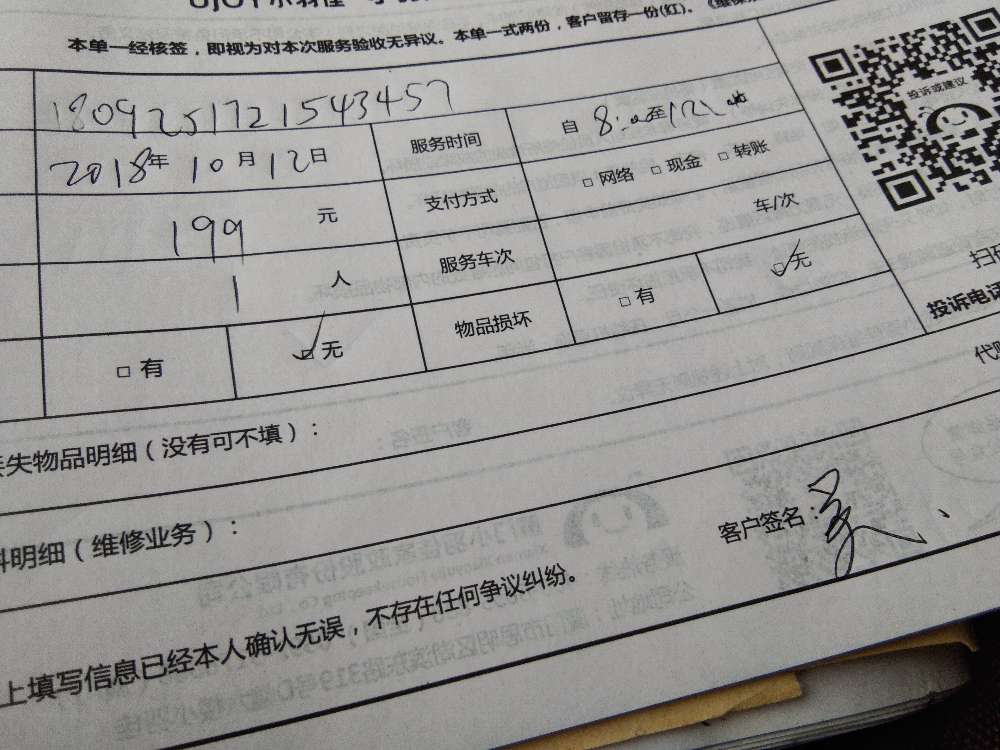 本单一经核签，即视为对本次服务验收无异议。本单一式两份，客户留存一份(红)。
投诉或建议
180925172154345​7
2018年 10月 12日 服务时间 自 8:00至12:00
199 元 支付方式 □ 网络 □ 现金 □ 转账
1 人 服务车次 车/次
□ 有 ☑ 无 物品损坏 □ 有 ☑ 无
扫码
投诉电话
失物品明细（没有可不填）：
代
料明细（维修业务）：
客户签名：
上填写信息已经本人确认无误，不存在任何争议纠纷。